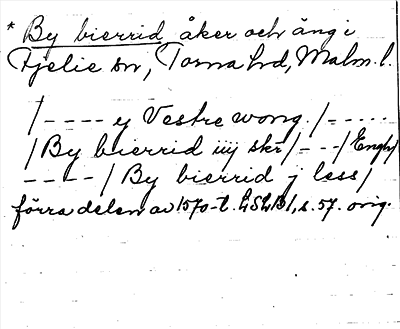 * By bierrid åker och äng i
Fjelie sn, Torna hd, Malm. l.
/ - - - - y Vestre wong. / - - - - -
/ By bierrid iiij skr / - - - / Engh /
- - - - / By bierrid j less /
förra delen av 1570-t. LSLB 1, s. 57. orig.